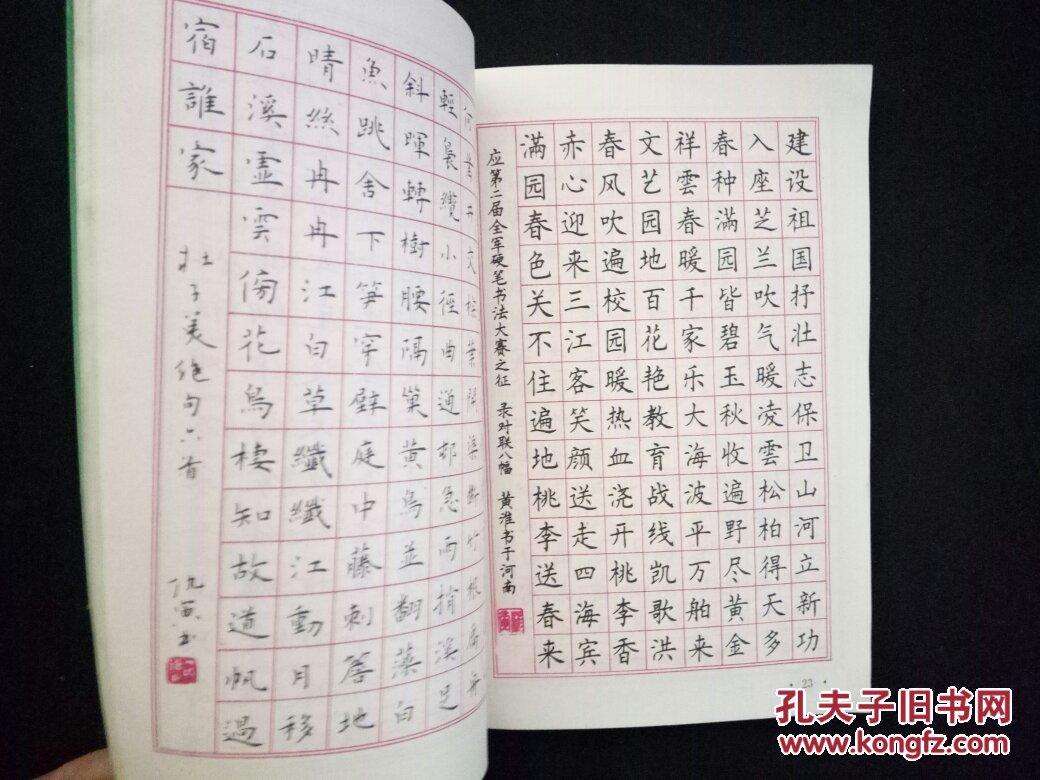 建设祖国抒壮志保卫山河立新功
入座芝兰吹气暖凌雲松柏得天多
春种满园皆碧玉秋收遍野尽黄金
祥雲春暖千家乐大海波平万舶来
文艺园地百花艳教育战线凯歌洪
春风吹遍校园暖热血浇开桃李香
赤心迎来三江客笑颜送走四海宾
满园春色关不住遍地桃李送春来
应第二届全军硬笔书法大赛之征 录对联八幅 黄淮书于河南
·23·
何井交葉開渠断竹根扁舟
輕裊纜小徑曲通邨急雨捎溪足
斜暉轉樹腰隔巢黄鳥並翻藻白
魚跳舍下笋穿壁庭中藤刺簷地
晴絲冉冉江白草纖纖江動月移
石溪虚雲傍花鳥棲知故道帆過
宿誰家 杜子美绝句六首 仇书
孔夫子旧书网
www.kongfz.com